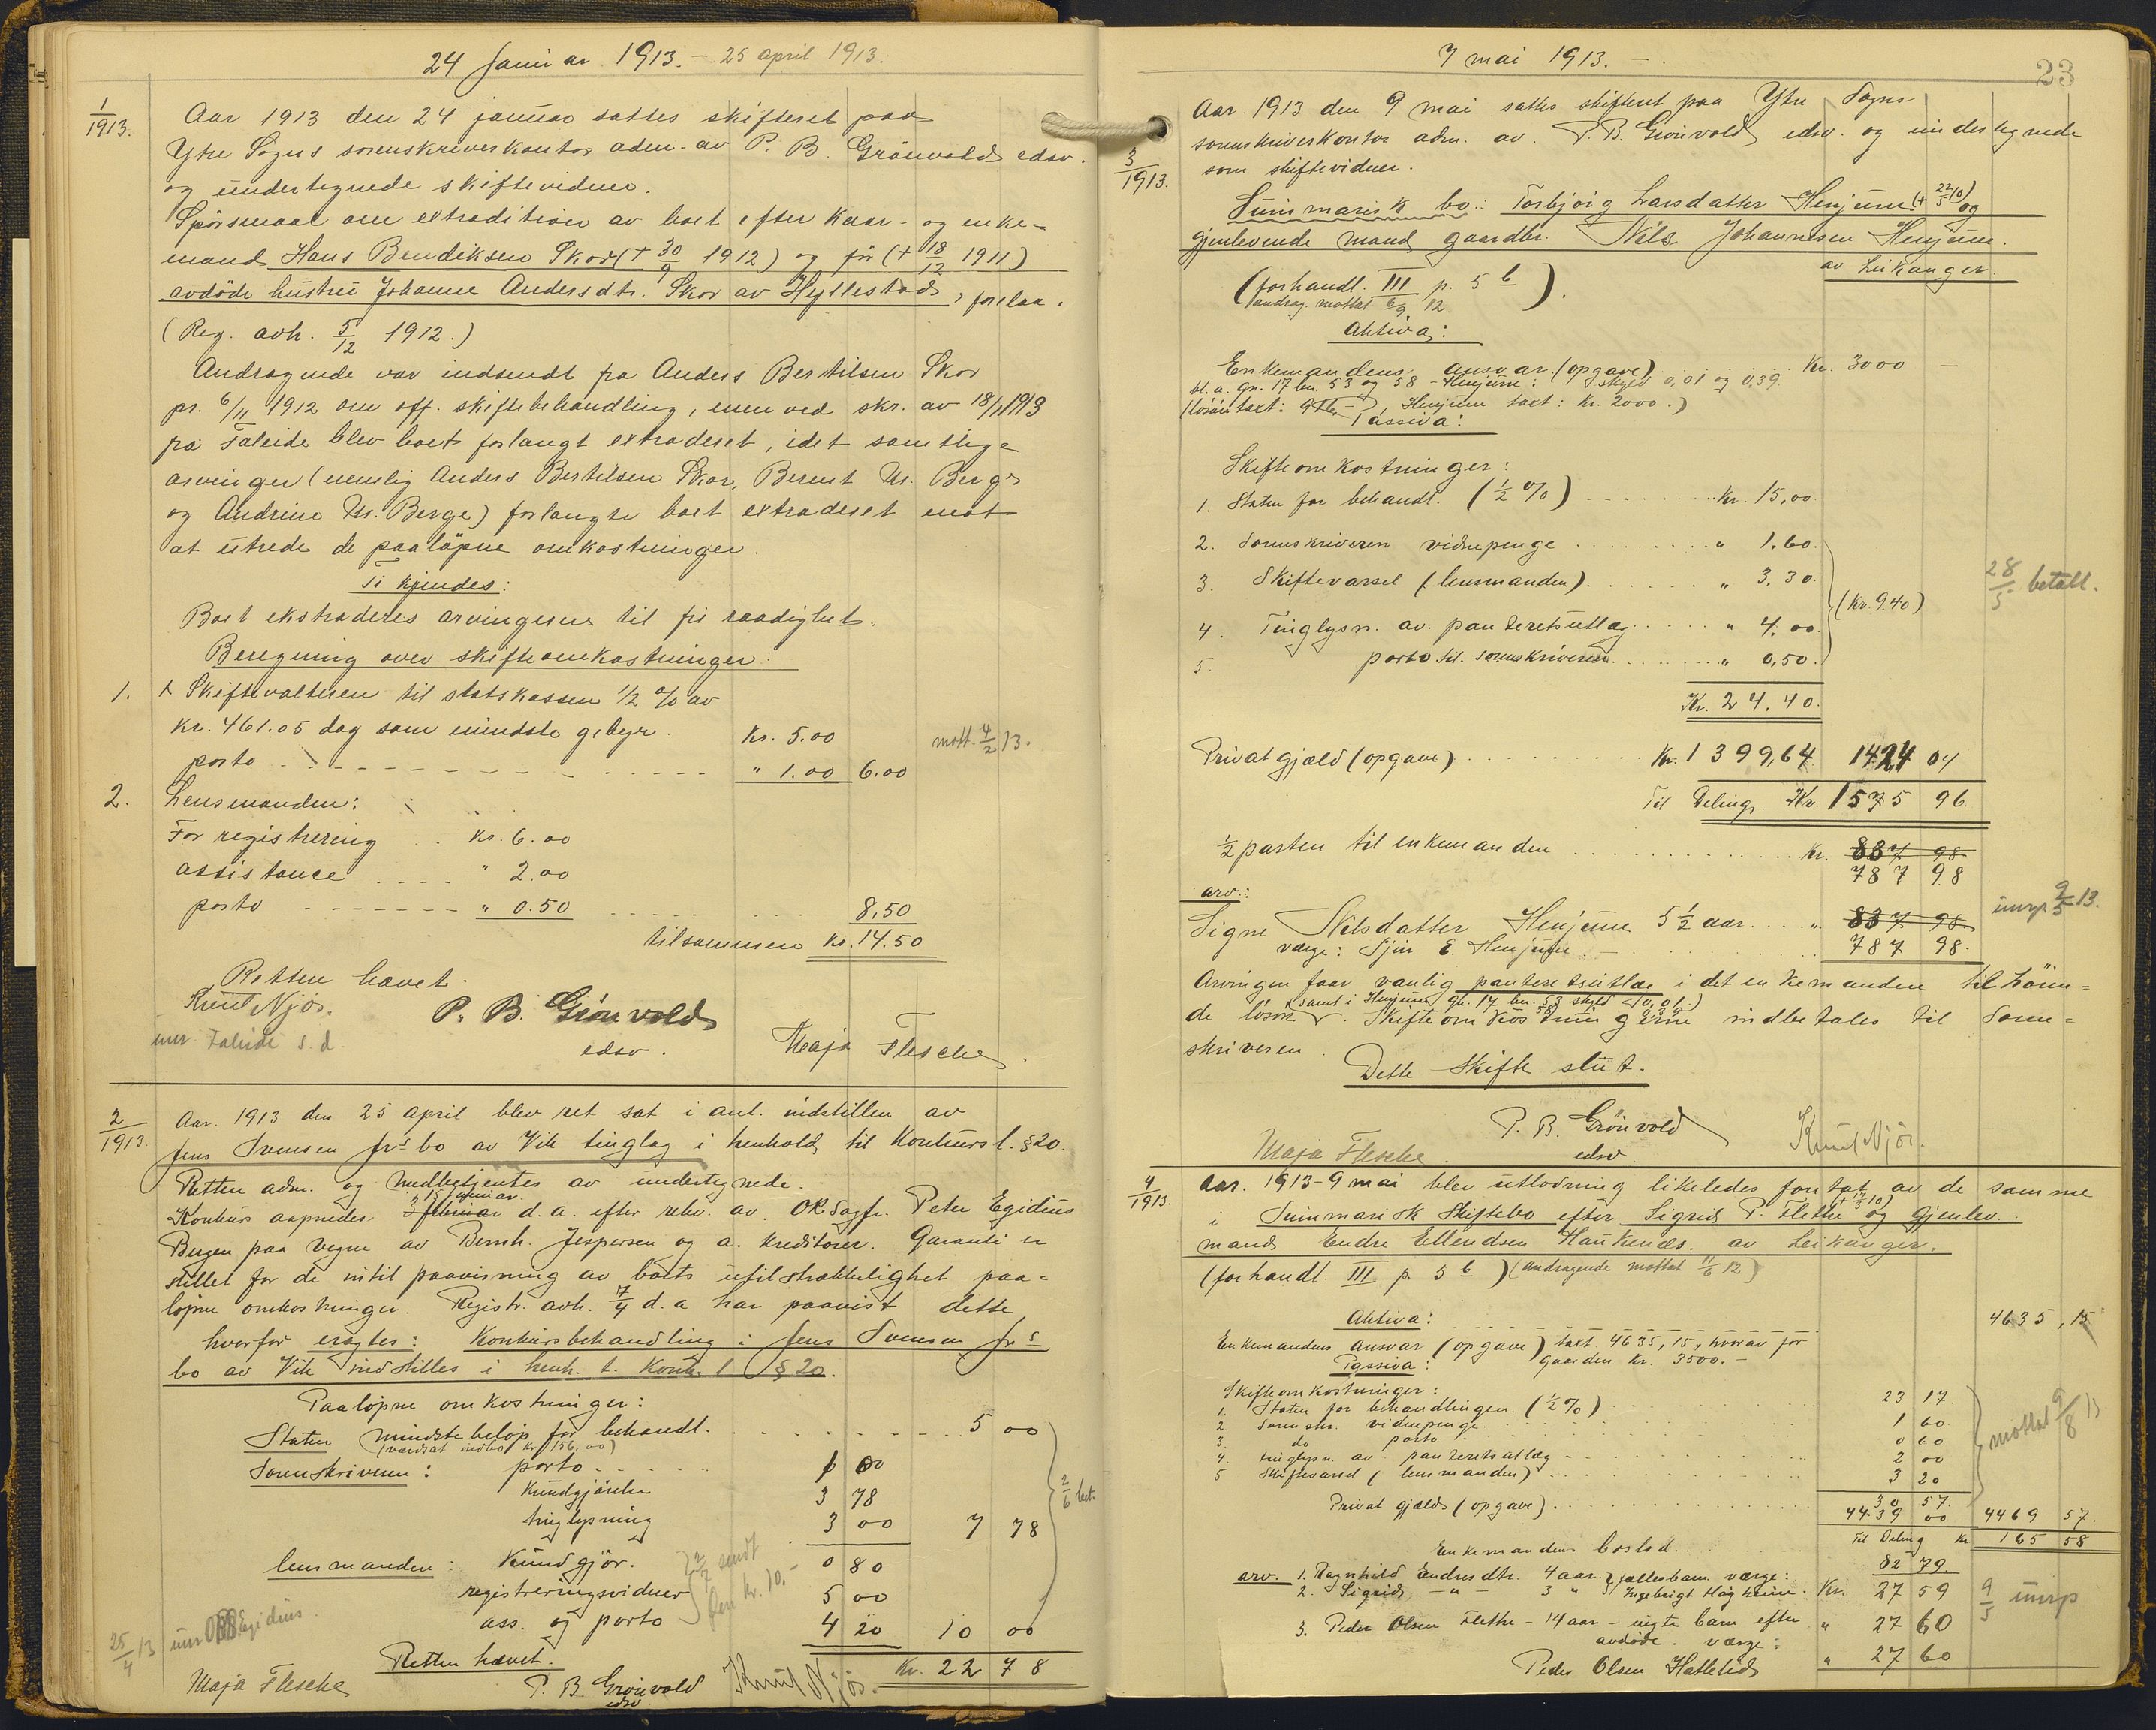 24 Januar 1913. - 25 april 1913.
1/1913. Aar 1913 den 24 januar sattes skifteret paa
Ytre Sogns sorenskriverkontor adm. av P. B. Grönvold edsv.
og undertegnede skiftevidner.
Spörsmaal om extradition av boet efter Kaar- og enke-
mand Hans Bendiksen Skor (+ 30/9 1912) og för (+ 18/12 1911)
avdöde hustru Johanne Andersdtr. Skor av Hyllestad, forelaa.
(Reg. avh. 5/12 1912.)
Andragende var indsendt fra Anders Bertilsen Skor
pr. 6/11 1912 om off. skiftebehandling, men ved skr. av 18/1 1913
fra Taleide blev boet forlangt extraderet, idet samtlige
arvinger (nemlig Anders Bertelsen Skor, Bernt M. Berge
og Andrine M. Berge) forlangte boet extraderet mot
at utrede de paalöpne omkostninger.
Ti kjendes:
Boet ekstraderes arvingerne til fri raadighet.
Beregning over skifteomkostninger:
1. Skifteforvalteren til statskassen 1/2 % av
Kr. 461.05 dog som mindste gebyr. Kr. 5.00
porto " 1.00 6.00 mott. 4/2 13.
2. Lensmanden:
For registrering Kr. 6.00
assistance " 2.00
porto " 0.50 8,50
tilsammen Kr. 14.50
Retten hævet.
Knut Njös. P. B. Grönvold
edsv. Maja Flesche.
unr. Taleide s. d.
2/1913. Aar. 1913 den 25 april blev ret sat i anl. indstillen av
Jens Svensen jrs bo av Vik tinglag i henhold til Konkursl. § 20.
Retten adm. og medbetjentes av undertegnede.
15 januar
Konkurs aapnedes 3 februar d. a. efter rekv. av O.R.Sagfr. Peter Egidius
Bergen paa vegne av Bernh. Jespersen og a. kreditorer. Garanti er
stillet for de intil paavisning av boets utilstrækkelighet paa-
löpne omkostninger. Registr. avh. 7/4 d. a har paavist dette
hvorfor eragtes: Konkursbehandling i Jens Svensen jrs
bo av Vik indstilles i henh. t. Konk. l § 20.
Paalöpne omkostninger:
Staten mindste belöp for behandl. 5 00
(værdsat indbo kr 156,00)
Sorenskriveren: porto 1 00
Kundgjörelse 3 78
tinglysning 3 00 7 78
2/6 bet.
lensmanden: Kundgjör. 0 80
registreringsvidner 5 00
ass. og porto 4 20 10 00
2/2 sendt
den kr. 10.-
25/4 13 unr Egidius.
Retten hævet. Kr. 22 78
Maja Flesche P. B. Grönvold Knut Njös.
edsv.
7 mai 1913. -
23
Aar 1913 den 9 mai sattes skifteret paa Ytre Sogns
sorenskriverkontor adm. av. P. B. Grönvold edsv. og undertegnede
3/1913. som skiftevidner.
Summarisk bo: Torbjörg Larsdatter Henjum (+ 22/5 10) og
gjenlevende mand gaardbr. Nils Johannesen Henjum.
av Leikanger.
(forhandl. III p. 5 b)
andrag. mottat 6/9 12.
Aktiva:
Enkemandens ansvar (opgave) Kr. 3000 -
bl. a. gn. 17 bn. 53 og 58 - Henjum: skyld 0,01 og 0,39.
Henjum taxt: Kr. 2000.)
Passiva:
Skifteomkostninger:
1. Staten for behandl. (1/2 %) Kr. 15,00.
2. Sorenskriveren vidnepenge " 1.60.
3. Skiftevarsel (lensmanden) " 3.30.
(Kr. 9.40.)
28/5 betalt.
4. Tinglysn. av panteretsutlæg " 4.00.
5. porto til sorenskriveren " 0,50.
Kr. 24.40.
Privat gjæld (opgave) Kr. 1399,64 1424 04
Til Deling Kr. 1575 96.
1/2 parten til enkemanden Kr. 837 98
787 98
arv:
Signe Nilsdatter Henjum 5 1/2 aar " 837 98
unrp 9/5 13.
værge: Sjur E. Henjum 787 98.
Arvingen faar vanlig panteretsutlæg i det enkemanden tilhören-
samt i Henjum gn. 17 bn. 53 skyld 0,01.)
58 0,39
de lösöre. Skifteomkostningerne indbetales til Soren-
skriveren.
Dette Skifte slut.
P. B. Grönvold
Maja Flesche. edsv. Knut Njös.
4/1913. Aar. 1913 - 9 mai blev utlodning likeledes foretat av de samme
i Summarisk Skiftebo efter Sigrid P. Flethe og gjenlev.
mand Endre Ellendsen Haukenæs. av Leikanger.
(forhandl. III p. 5 b) (andragende mottat 11/6 12)
Aktiva: 4635,15
Enkemandens ansvar (opgave) taxt. 4635,15, hvorav for
Passiva: gaarden Kr. 3500.-
Skifteomkostninger:
1. Staten for behandlingen (1/2 %) 23 17.
2. Sorenskr. vidnepenge 1 60
3. do porto 0 60
4. tinglysn. av panteretsutlæg 2 00
5 Skiftevarsel (lensmanden) 3 20
mottat 9/8 13
30 57.
Privat gjæld (opgave) 4439 00 4469 57.
Til Deling Kr 165 58
Enkemandens boslod 82 79.
arv. 1. Ragnhild Endresdtr. 4 aar. fællesbarn værge:
2. Sigrid - " - 3 " Ingebrigt Haukenæs. Kr. 27 59
9/5 unrp
3. Peder Olsen Flethe - 14 aar - uegte barn efter " 27 60
avdöde. værge:
Peder Olsen Hatlelid " 27 60